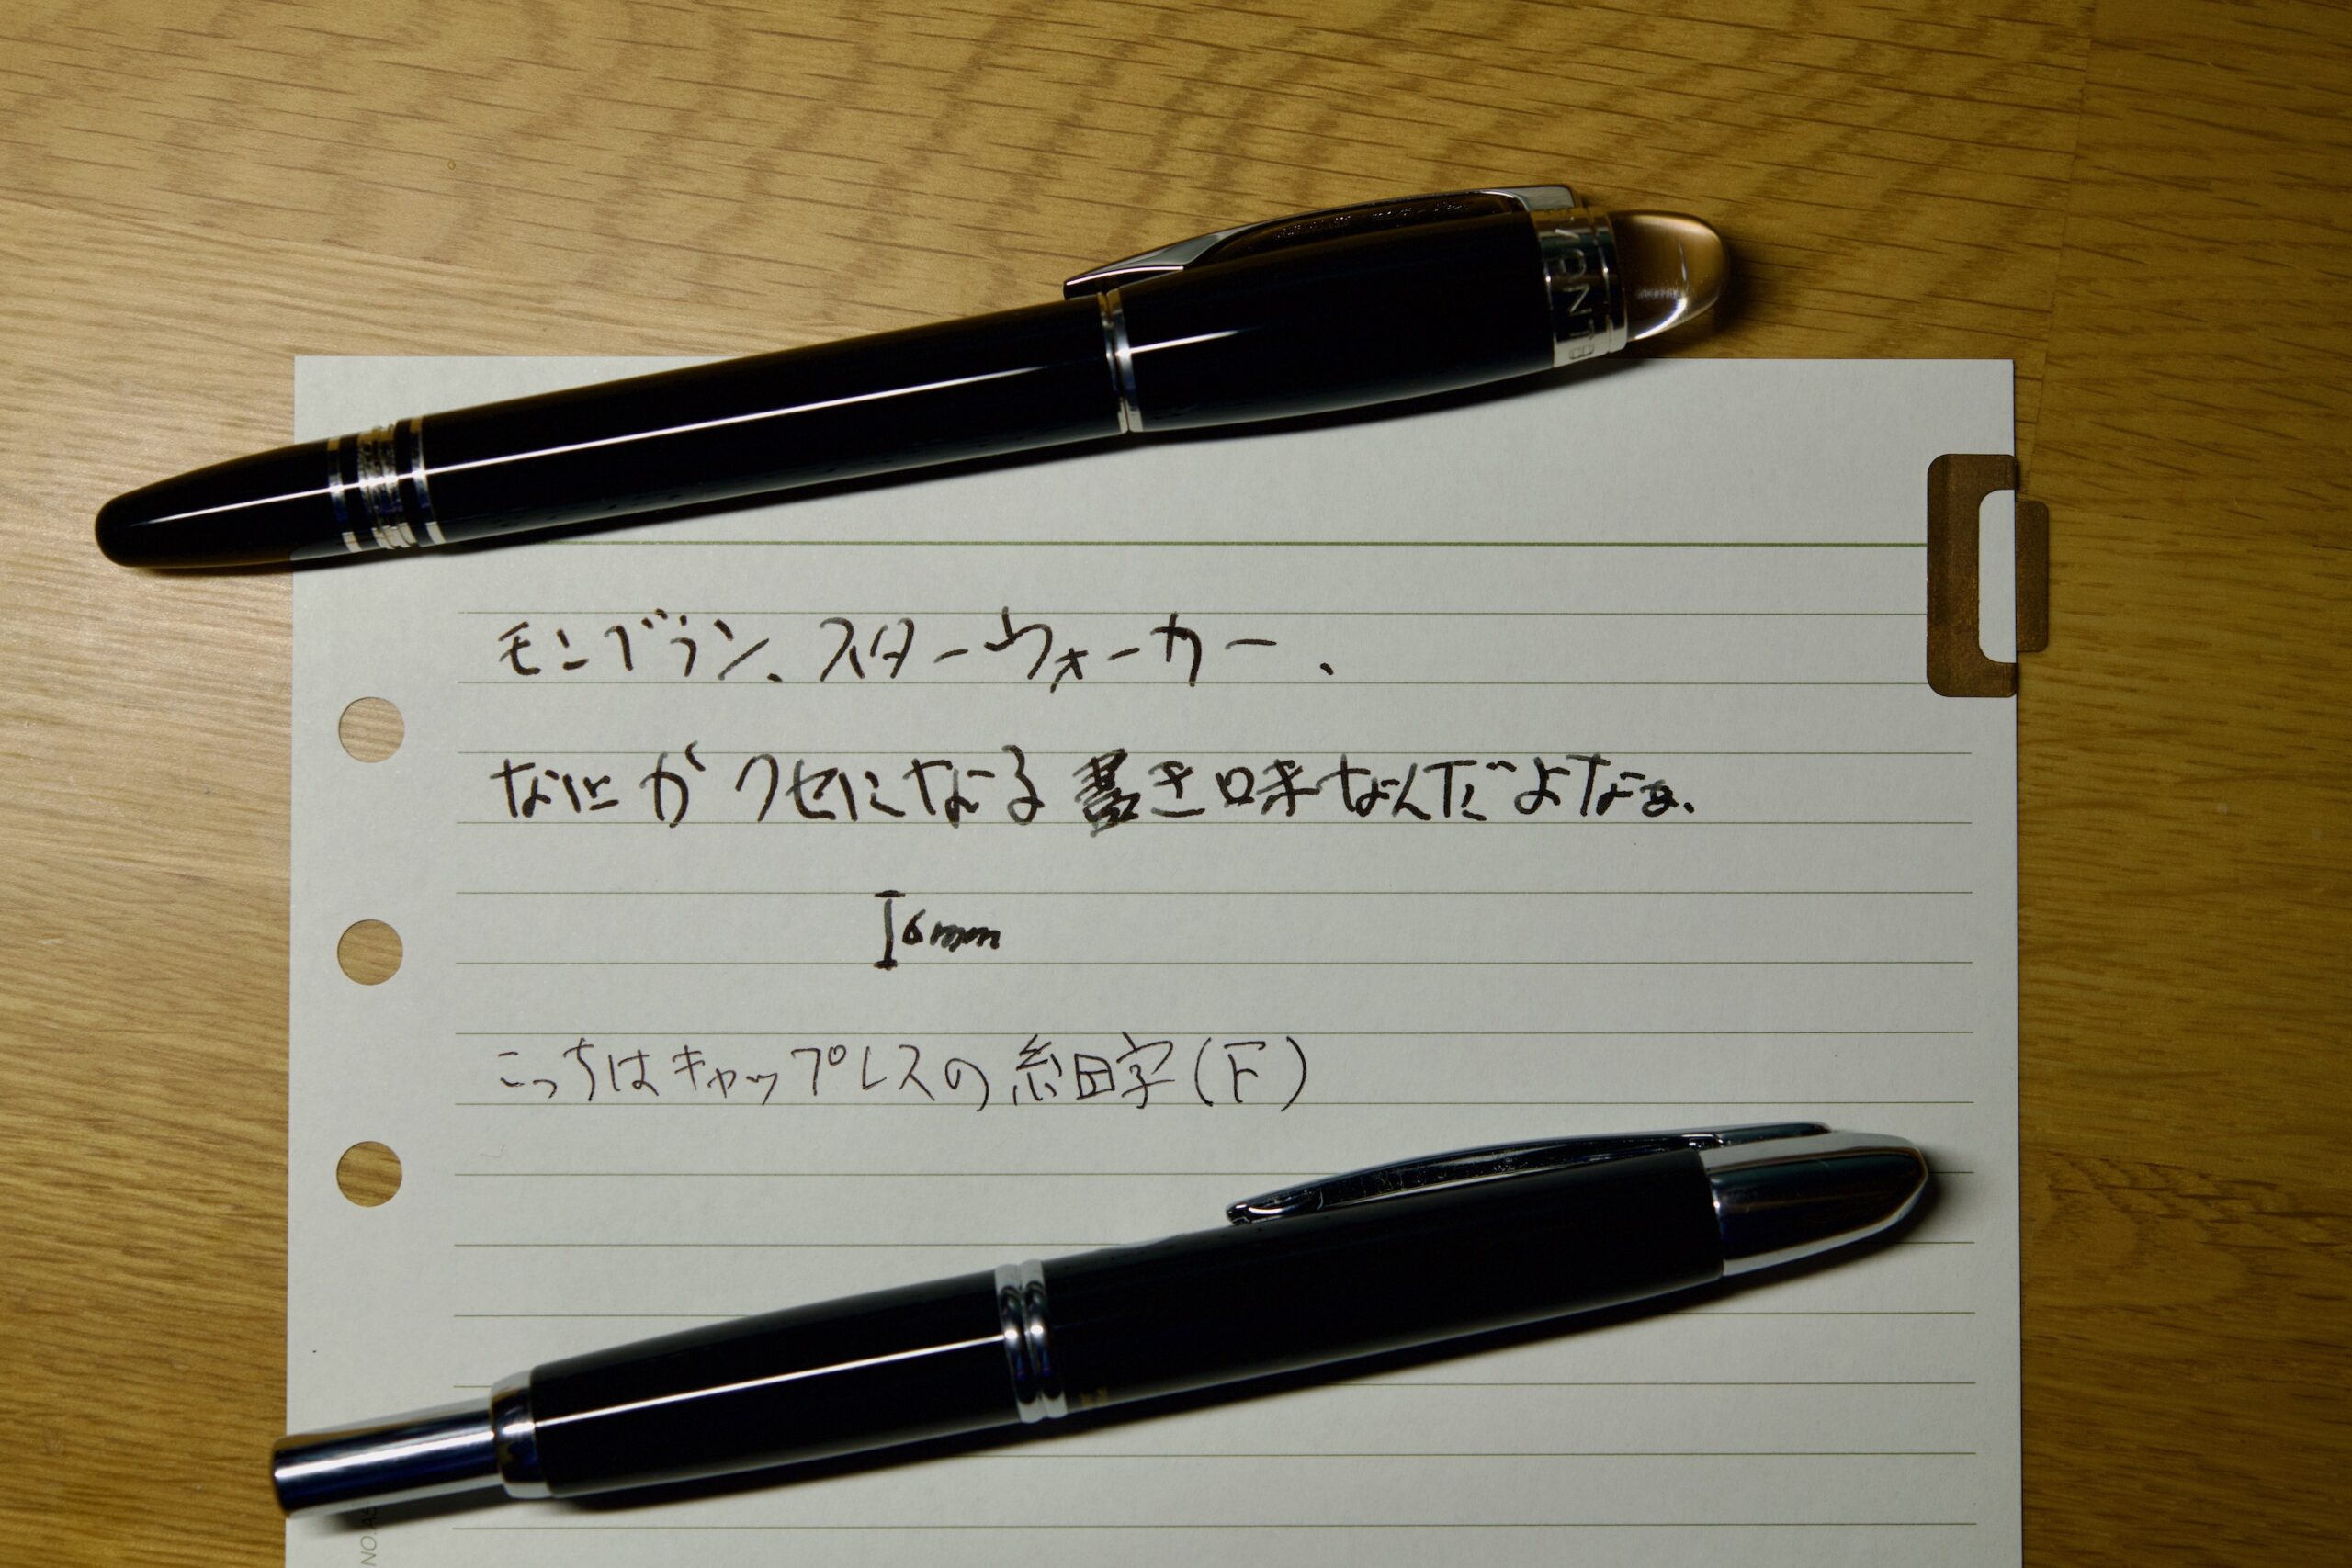 MONTB
モンブラン、スターウォーカー、
なにがクセになる書き味なんだよなぁ、
6mm
こっちはキャップレスの細字(F)